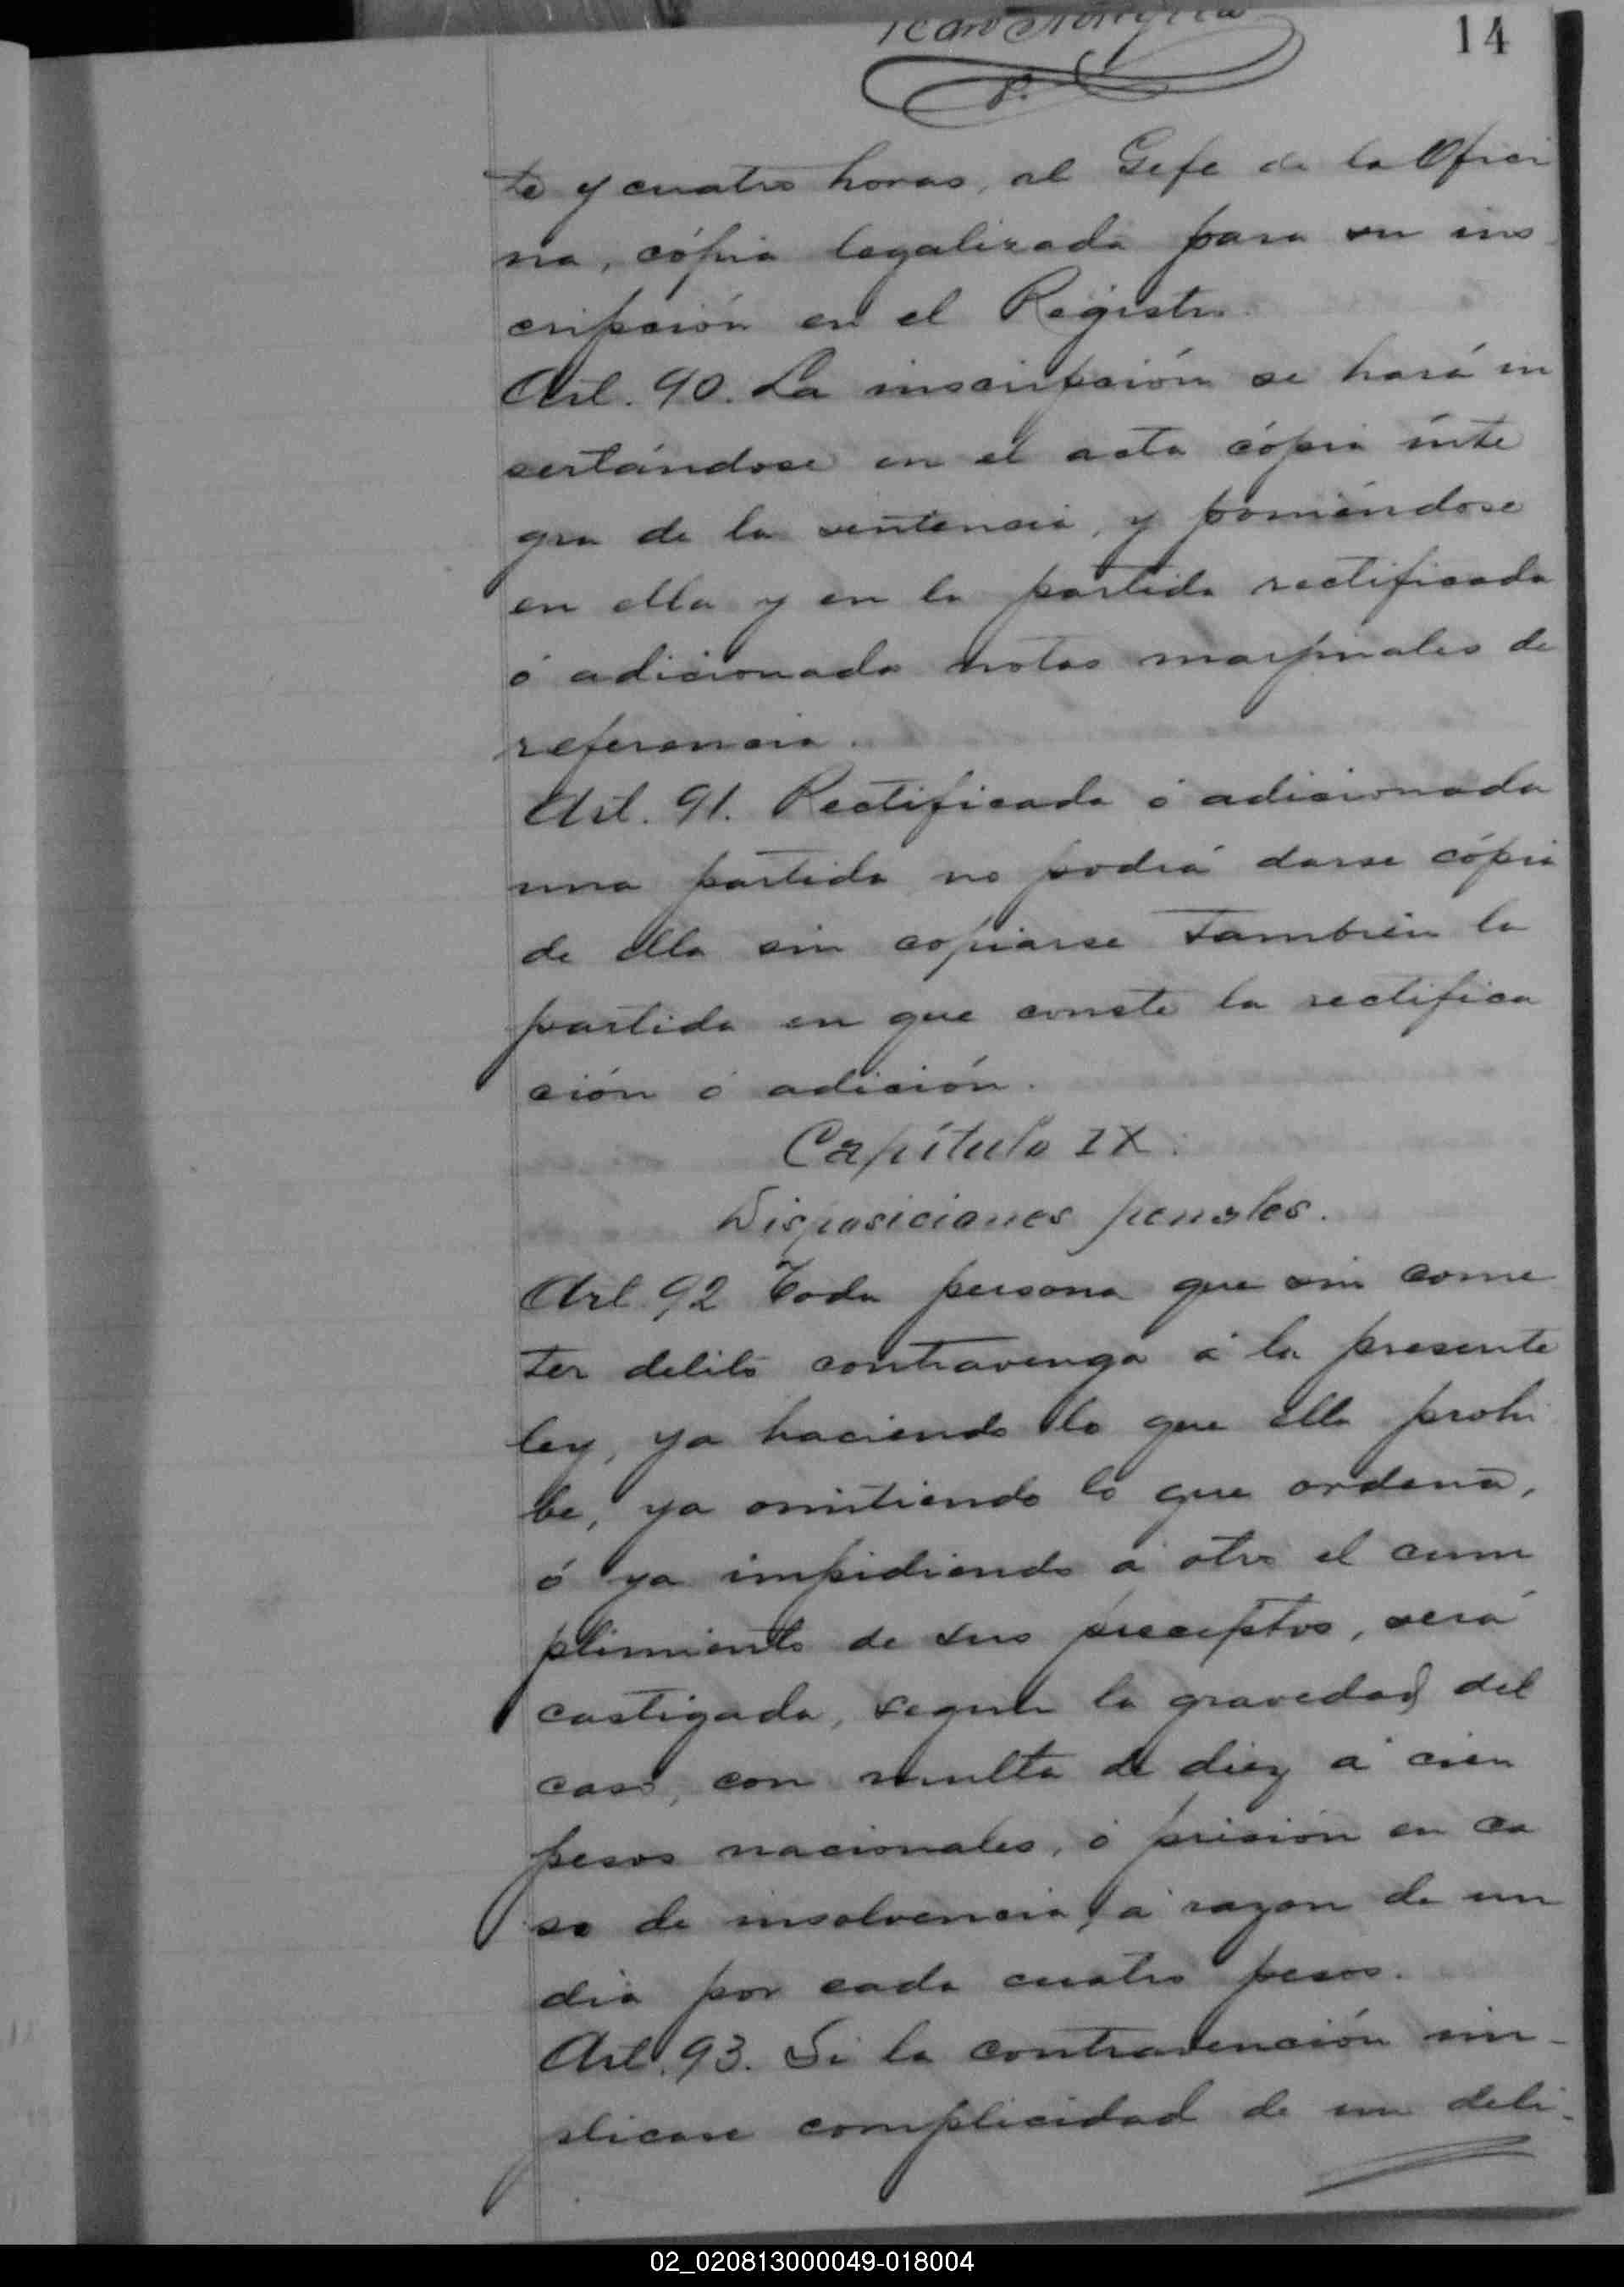 14
te y cuatro horas, al Gefe de la Ofici
na, cópia legalizada para su ins
cripción en el Registro.
Art. 90. La inscripción se hará in
sertándose en el acta cópia ínte
gra de la sentencia, y poniéndose
en ella y en la partida rectificada
ó adicionada notas marginales de
referencia.
Art. 91. Rectificada ó adicionada
una partida no podrá darse cópia
de ella sin copiarse tambien la
partida en que conste la rectifica
ción ó adición.
Capítulo IX.
Disposiciones penales.
Art. 92 Toda persona que sin come
ter delito contravenga á la presente
ley, ya haciendo lo que ella prohi
be, ya omitiendo lo que ordena,
ó ya impidiendo á otro el cum
plimiento de sus preceptos, será
castigada, segun la gravedad del
caso, con multa de diez á cien
pesos nacionales, ó prisión en ca
so de insolvencia, á razon de un
dia por cada cuatro pesos.
Art. 93. Si la contravención im-
plicase complicidad de un deli-
02_020813000049-018004